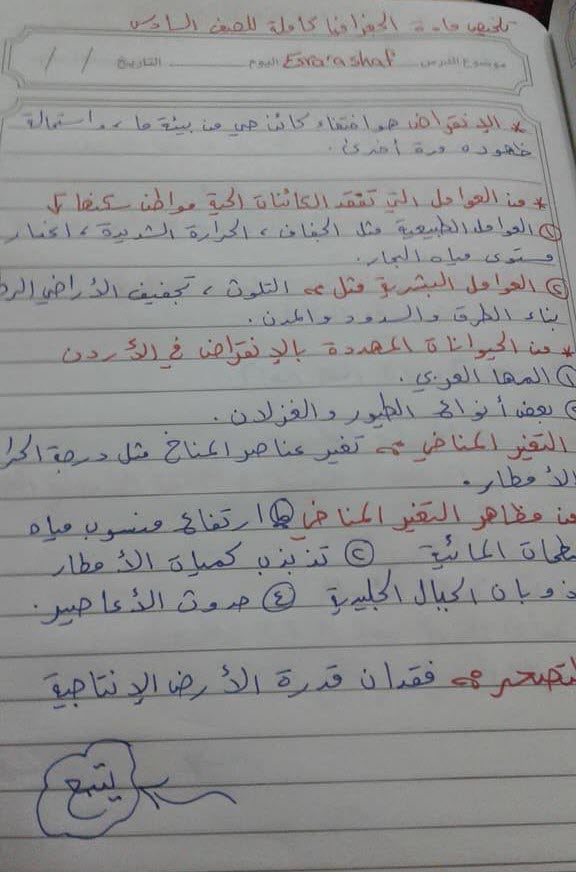 تلخيص مادة الجغرافيا كاملة للصف السادس
موضوع الدرس Esra'a ashaf اليوم التاريخ / /
* الإنقراض هو اختفاء كائن حي من بيئة ما، واستحالة
ظهوره مرة أخرى.
* من العوامل التي تفقد الكائنات الحية مواطن سكنها ↓
① العوامل الطبيعية مثل الجفاف، الحرارة الشديدة،
مستوى مياه البحار.
② العوامل البشرية مثل التلوث، تجفيف الأراضي
بناء الطرق والسدود والمدن.
* من الحيوانات المهددة بالإنقراض في الأردن
① المها العربي.
② بعض أنواع الطيور والغزلان.
التغير المناخي تغير عناصر المناخ مثل درجة
الأمطار.
من مظاهر التغير المناخي ① ارتفاع منسوب مياه
المائية ② تذبذب كميات الأمطار
ذوبان الجبال الجليدية ④ حدوث الأعاصير.
فقدان قدرة الأرض الإنتاجية
يتبع